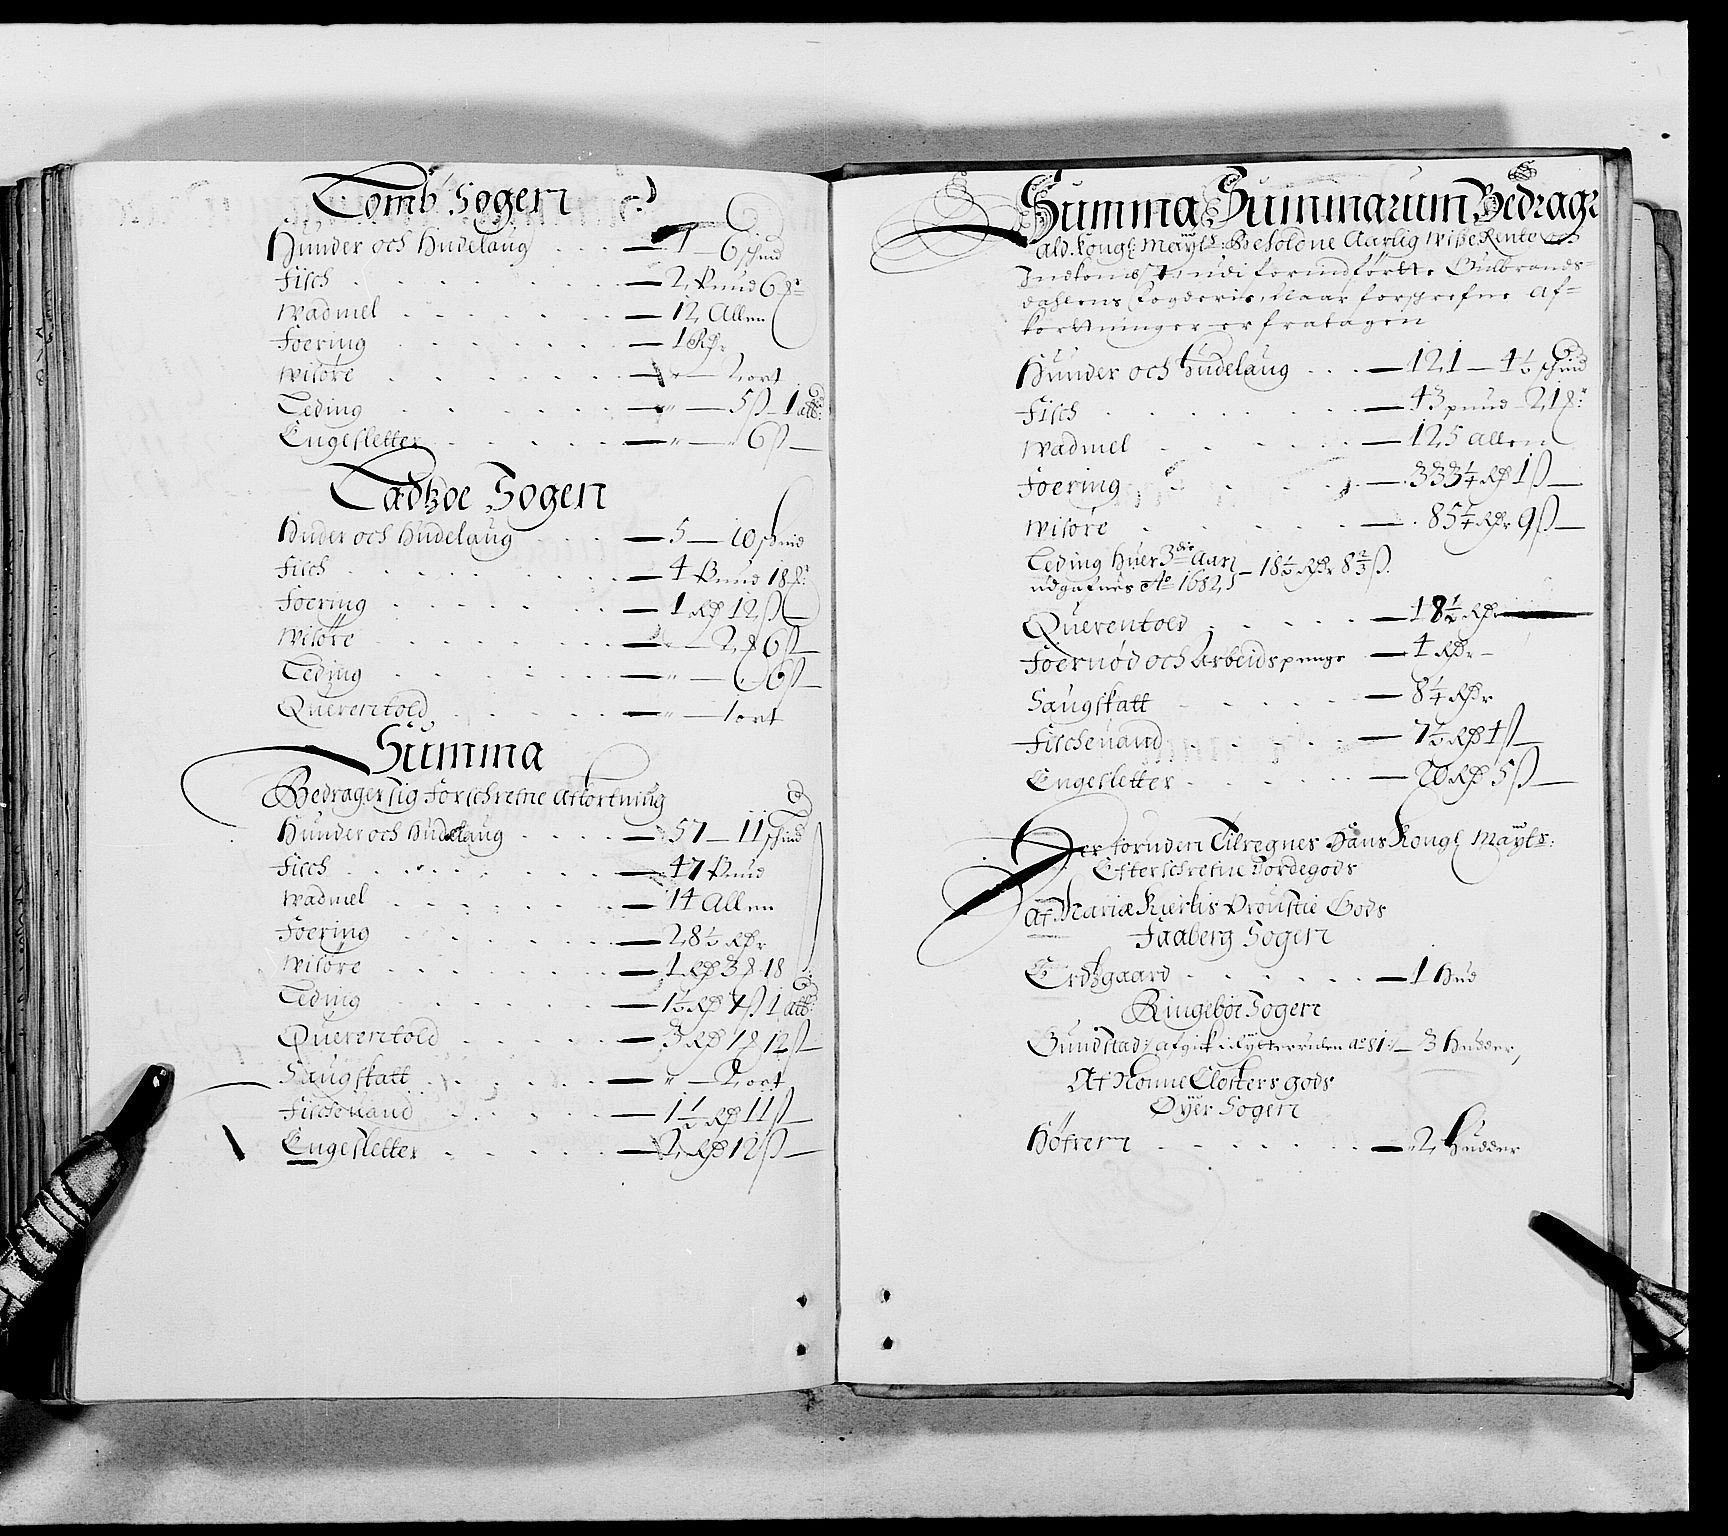 Lomb Sogen
Hunder och Hudelaug — 7 — 6 schind
Fisch — 2 Pund 6 ℔r
Wadmel — 12 Allen
Foering — 1 Rdr
Wisöre — " — 2 ort
Leding — " — 5 ß 1 alb:
Engesletter — " — 6 ß —
Ladzoe Sogen
Huder och Hudelaug — 5 — 10 schnid
Fisch — 4 Pund 18 ℔r
Foering — 1 Rd 12 ß —
Wisöre — " — 2 ℔ 6 ß —
Leding — " — 6 ß —
Querentold — " — 1 ort
Summa
Bedrager sig forschrefne Afkortning
Hunder och Hudelaug — 57 — 11 schind
Fisch — 47 Pund
Wadmel — 14 Allen
Foering — 28½ Rdr
Wisöre — 1 Rd 3 ℔ 18
Leding — 1½ Rd 4 ß 1 alb:
Querentold — 3 Rd 1 ℔ 12 ß —
Saugskatt — " — 2 ort
Fischeuand — 1½ Rd 11 ß —
Engesletter — 2 Rd 12 ß —
Summa Summarum Bedrager
ald Kongl: Mayts: Beholdne Aarlig wiße Rente och
Indkomst udi forindførtte Gulbrands-
dahlens fogderie, Naar forschrefne Af-
kortninger er fratagen
Hunder och Hudelaug — 121 — 4½ schind
Fisch — 43 pund 21 ℔r
Wadmel — 125 allen
Foering — 333¼ Rd 1 ß —
Wisöre — 85¼ Rdr 9 ß —
Leding huer 3die Aar
udgafnes Ao 1682 — 18½ Rdr 8⅔ ß.
Querentold — 18½ Rdr
Foernød och Arbeidspenge — 4 Rdr —
Saugskatt — 8¼ Rdr
Fischeuand — 7½ Rd 4 ß —
Engesletter — 20 Rd 5 ß —
Der foruden Tilregnes Hans Kongl Mayts:
Efterschrefne Jordegods
Af Mariæ Kirkis Proustie Gods
Faaberg Sogen
Erdzgaard — 1 Hud
Ringeboe Sogen
Gundstad /: afgick i Rytter Ao 81 :/ — 3 Hudder,
Af Nonne Closters gods
Oyer Sogen
Hofren — 2 Hudder